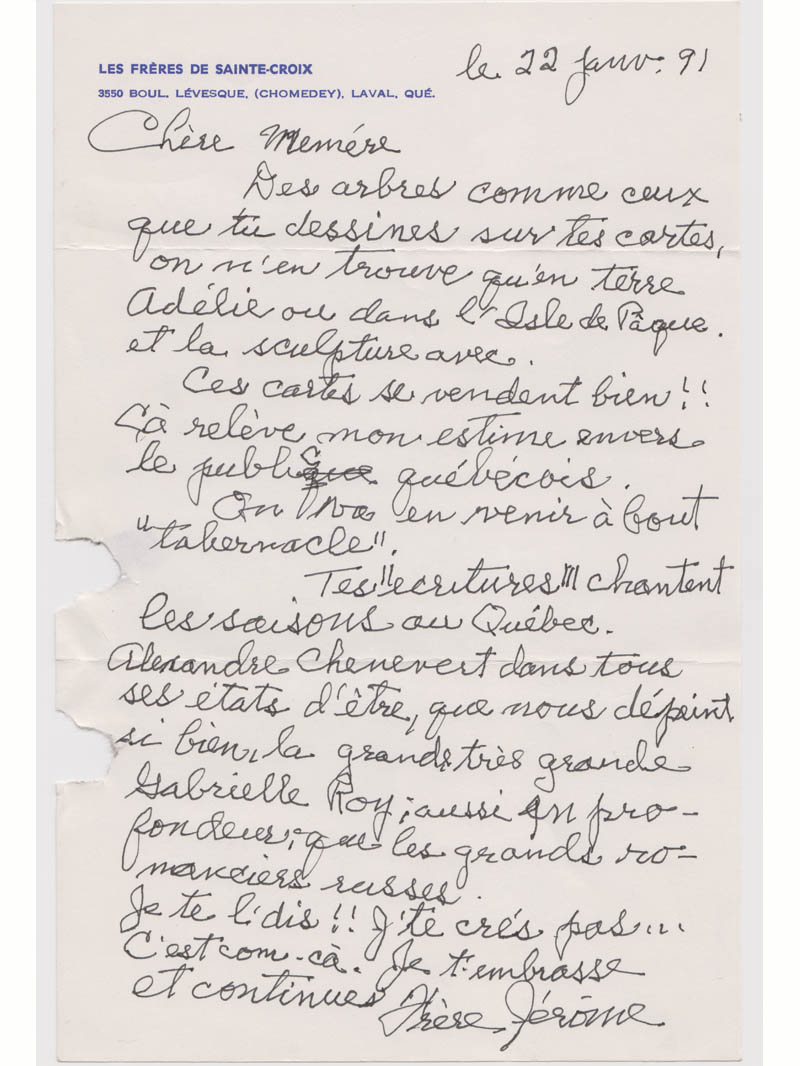 LES FRÈRES DE SAINTE-CROIX
3550 BOUL. LÉVESQUE, (CHOMEDEY), LAVAL, QUÉ.
le 22 janv. 91
Chère Memére
Des arbres comme ceux
que tu dessines sur tes cartes,
on n'en trouve qu'en terre
Adélie ou dans l'Isle de Pâque.
et la sculpture avec.
Ces cartes se vendent bien!!
Çà relève mon estime envers
le public québécois.
On va en venir à bout
"tabernacle".
Tes "ecritures" chantent
les saisons au Québec.
Alexandre Chenevert dans tous
ses états d'être, que nous dépeint
si bien, la grande très grande
Gabrielle Roy; aussi en pro-
fondeur, que les grands ro-
manciers russes.
Je te l'dis!! J'te crés pas...
C'est com-çà. Je t'embrasse
et continues
Frère Jérôme